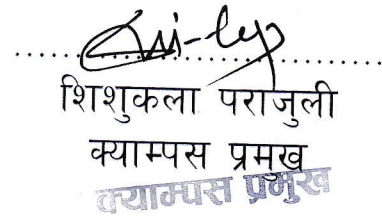 शिशुकला पराजुली
क्याम्पस प्रमुख
क्याम्पस प्रमुख